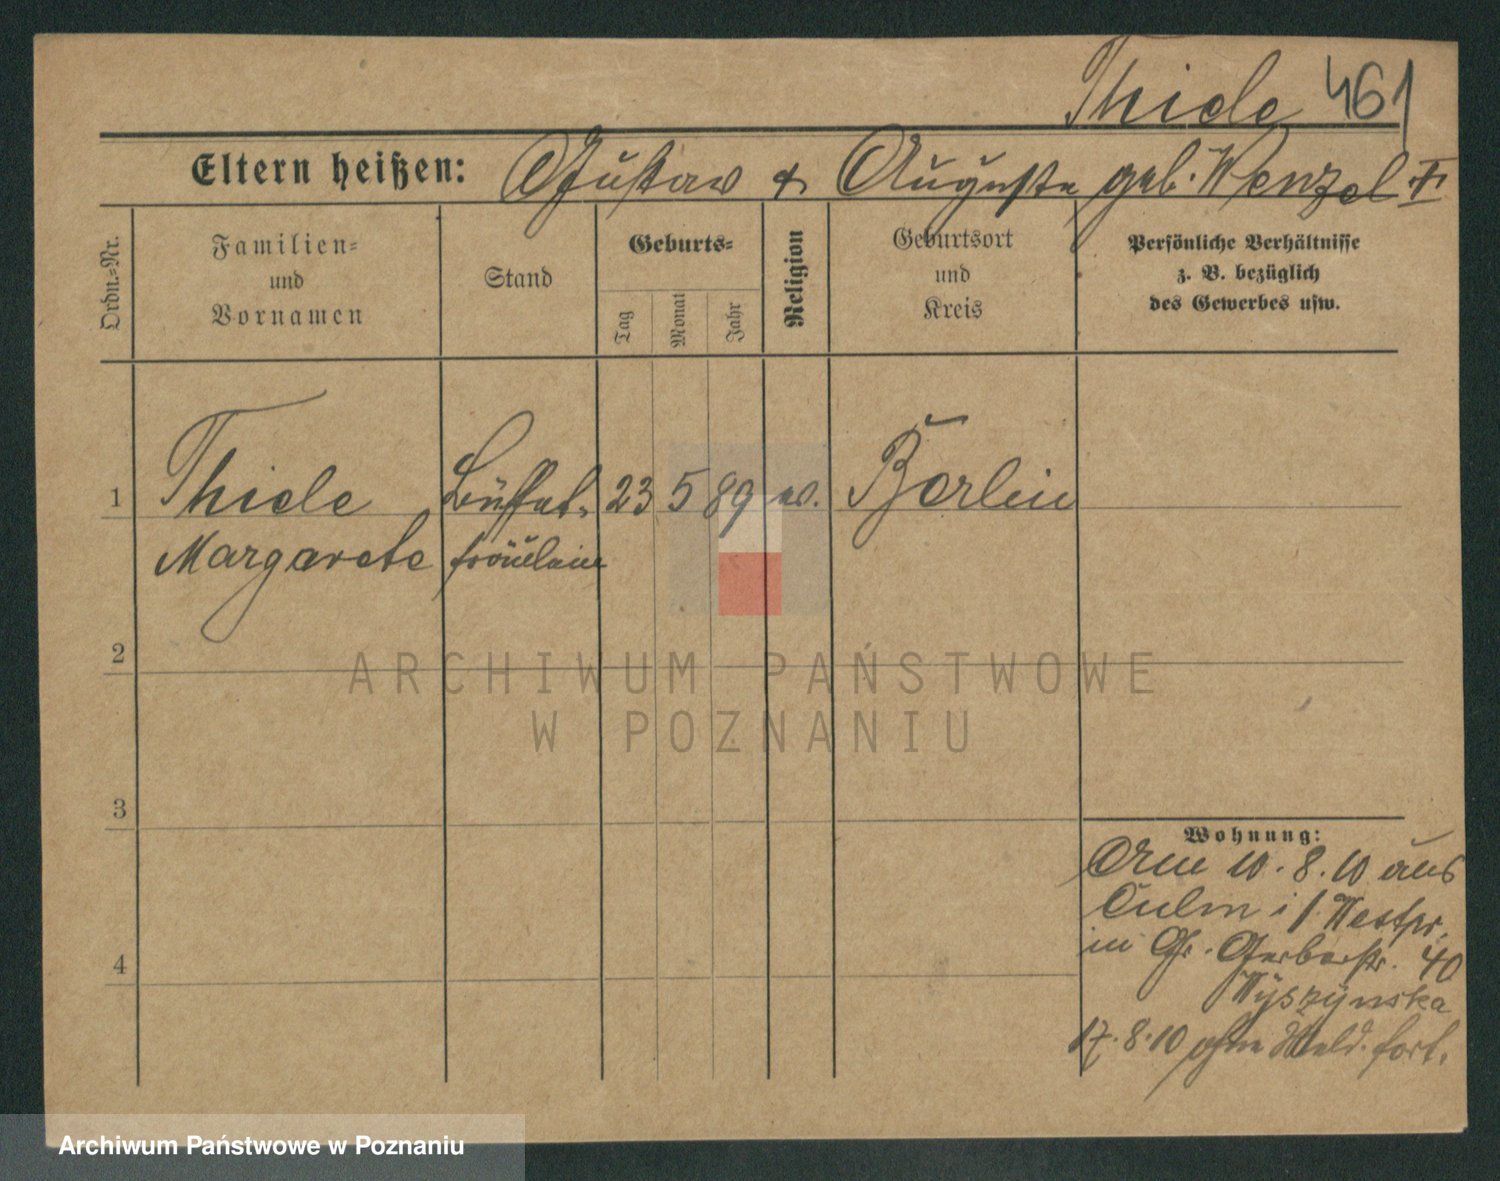 Thiele 461
Eltern heißen: Gustav & Auguste geb. Wenzel
Ordn.-Nr.
Familien-
und
Vornamen
Stand
Geburts-
Tag
Monat
Jahr
Religion
Geburtsort
und
Kreis
Persönliche Verhältnisse
z. B. bezüglich
des Gewerbes usw.
1 Thiele Büffet- 23 5 89 ev. Berlin
Margarete fräulein
2
3
4
Wohnung:
Am 10.8.10 aus
Culm i/ Westpr.
in Gr. Gerberstr. 40
Wyszynska
17.8.10 ohne Meld. fort.
ARCHIWUM PAŃSTWOWE
W POZNANIU
Archiwum Państwowe w Poznaniu